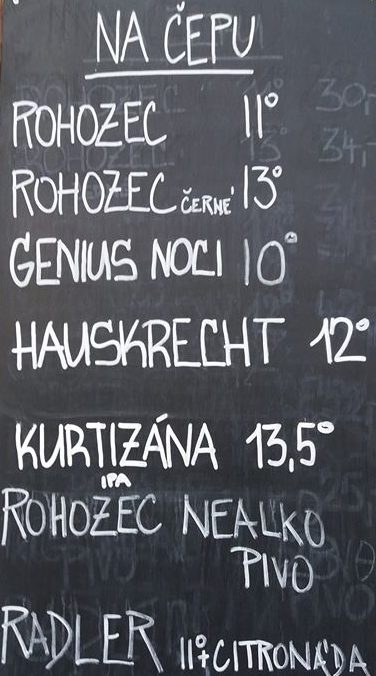 NA ČEPU
ROHOZEC 11°
ROHOZEC ČERNÉ 13°
GENIUS NOCI 10°
HAUSKRECHT 12°
KURTIZÁNA 13,5°
IPA
ROHOZEC NEALKO
PIVO
RADLER 11°+CITRONÁDA